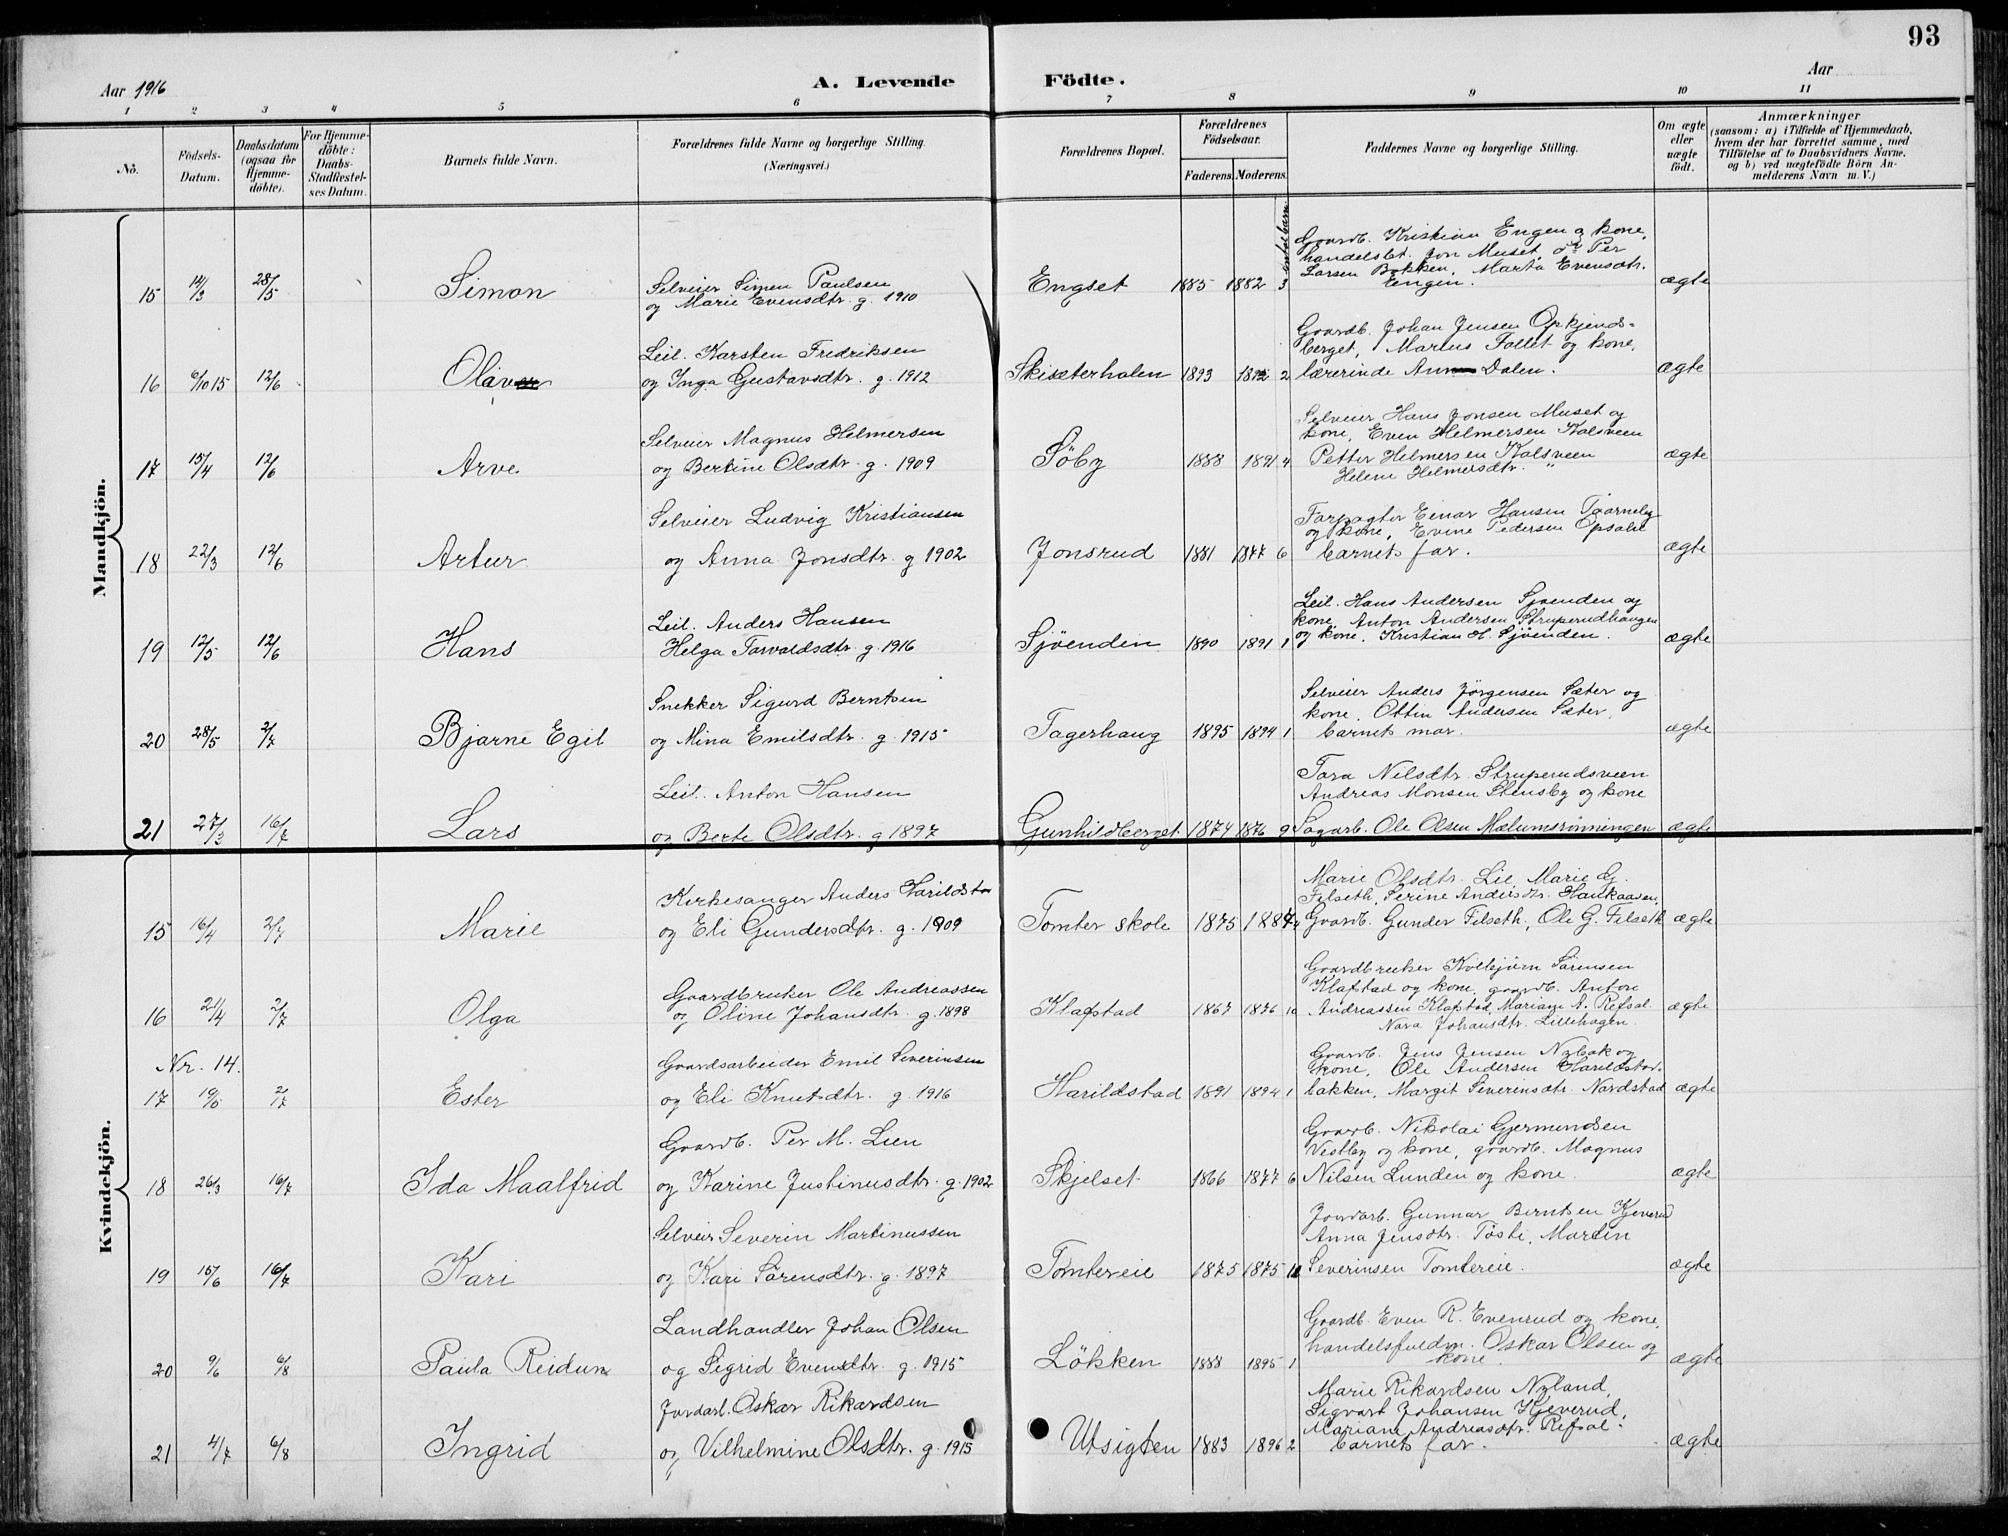 93
Aar 1916
A. Levende
Födte.
Aar
1 2 3 4 5 6 7 8 9 10 11
No.
Födsels-
Datum.
Daabsdatum
(ogsaa for
Hjemme-
döbte).
For Hjemme-
döbte:
Daabs-
Stadfæstel-
ses Datum.
Barnets fulde Navn.
Forældrenes fulde Navne og borgerlige Stilling.
(Næringsvei.)
Forældrenes Bopæl.
Forældrenes
Födselsaar.
Faderens. Moderens.
Faddernes Navne og borgerlige Stilling.
Om ægte
eller
uægte
födt.
Anmærkninger
(saasom: a) i Tilfælde af Hjemmedaab,
hvem der har forrettet samme, med
Tilföielse af to Daabsvidners Navne,
og b) ved uægtefödte Börn An-
melderens Navn m. V.)
Mandkjön.
antal barn.
15 14/3 28/5 Simon
Selveier Simen Paulsen
og Marie Evensdtr. g. 1910
Engset 1885 1882 3
Gaardb. Kristian Engen og kone,
handelsbet. Jon Muset, Per
Larsen Bakken, Marta Evensdtr.
Engen.
ægte
16 6/10 15 12/6 Olav
Leil. Karsten Fredriksen
og Inga Gustavsdtr. g. 1912
Skisæterhalen 1893 1892 2
Gaardb. Johan Jensen Opkjends-
berget, Marius Fallet og kone,
lærerinde Dalen.
ægte
17 15/4 12/6 Arve
Selveier Magnus Helmersen
og Bertine Olsdtr. g. 1909
Söby 1888 1891 4
Selveier Hans Jonsen Muset og
kone, Even Helmersen Kalsveen
Petter Helmersen Kalsveen
Helene Helmersdtr. "
ægte
18 22/3 12/6 Artur
Selveier Ludvig Kristiansen
og Anna Jonsdtr. g 1902
Jonsrud 1881 1877 6
Forpagter Einar Hansen Taarneby
og kone, Evine Pedersen Opsahl
barnets far.
ægte
19 12/5 12/6 Hans
Leil. Anders Hansen
Helga Torvaldsdtr. g. 1916
Sjöenden 1890 1891 1
Leil. Hans Andersen Sjöenden og
kone, Anton Andersen Struperudhaugen
og kone, Kristian H. Sjöenden.
ægte
20 28/5 2/7 Bjarne Egil
Snekker Sigurd Berntsen
og Mina Emilsdtr. g. 1915
Tagerhaug 1895 1894 1
Selveier Anders Jørgensen Sæter og
kone, Ottin Andersen Sæter,
barnets mor.
ægte
21 27/3 16/7 Lars
Leil. Anton Hansen
og Berte Olsdtr. g 1897
Gunhildberget 1874 1876 9
Tora Nilsdtr. Struperudsveen
Andreas Monsen Stensby og kone
Sagarb. Ole Olsen Mælumsrönningen
ægte
Kvindekjön.
15 16/4 2/7 Marie
Kirkesanger Anders Harildstad
og Eli Gundersdtr. g. 1909
Tomter skole 1875 1887 4
Marie Olsdtr. Lie, Marie G.
Filseth, Serine Andersdtr. Haukaasen,
Gaardb. Gunder Filseth, Ole G. Filseth
ægte
16 21/4 2/7 Olga
Gaardbruker Ole Andreassen
og Oline Johansdtr. g. 1898
Klafstad 1867 1876 10
Gaardbruker Kolbjörn Sörensen
Klafstad og kone, gaardb. Anton
Andreassen Klafstad, Mariane A. Refsal
Nara Johansdtr. Lillehagen.
ægte
Nr. 14.
17 19/5 2/7 Ester
Gaardsarbeider Emil Severinsen
og Eli Knutsdtr. g. 1916
Harildstad 1891 1894 1
Gaardb. Jens Jensen Nybak og
kone, Ole Andersen Harildstad-
bakken, Margit Severinsdtr. Nordstad
ægte
18 26/3 16/7 Ida Maalfrid
Gaardb. Per M. Lien
og Karine Justinusdtr. g. 1902
Skjelset 1866 1877 6
Gaardb. Nikolai Gjermundsen
Vestby og kone, gaardb. Magnus
Nilsen Lunden og kone.
ægte
19 15/6 16/7 Kari
Selveier Severin Martinussen
og Kari Sörensdtr. g. 1897
Tomtereie 1875 1875 11
Jordarb. Gunnar Berntsen Kjeverud
Anna Jensdtr. Tösti, Martin
Severinsen Tomtereie.
ægte
20 9/6 6/8 Paula Reidun
Landhandler Johan Olsen
og Sigrid Evensdtr. g. 1915
Lökken 1888 1895 1
Gaardb. Even R. Evenrud og kone,
handelsfuldm. Oskar Olsen og
kone.
ægte
21 4/7 6/8 Ingrid
Jordarb. Oskar Rikardsen
og Vilhelmine Olsdtr. g. 1915
Utsigten 1883 1896 2
Marie Rikardsen Nyland,
Sigvart Johansen Kjeverud,
Mariane Andreasdtr. Refsal.
barnets far.
ægte